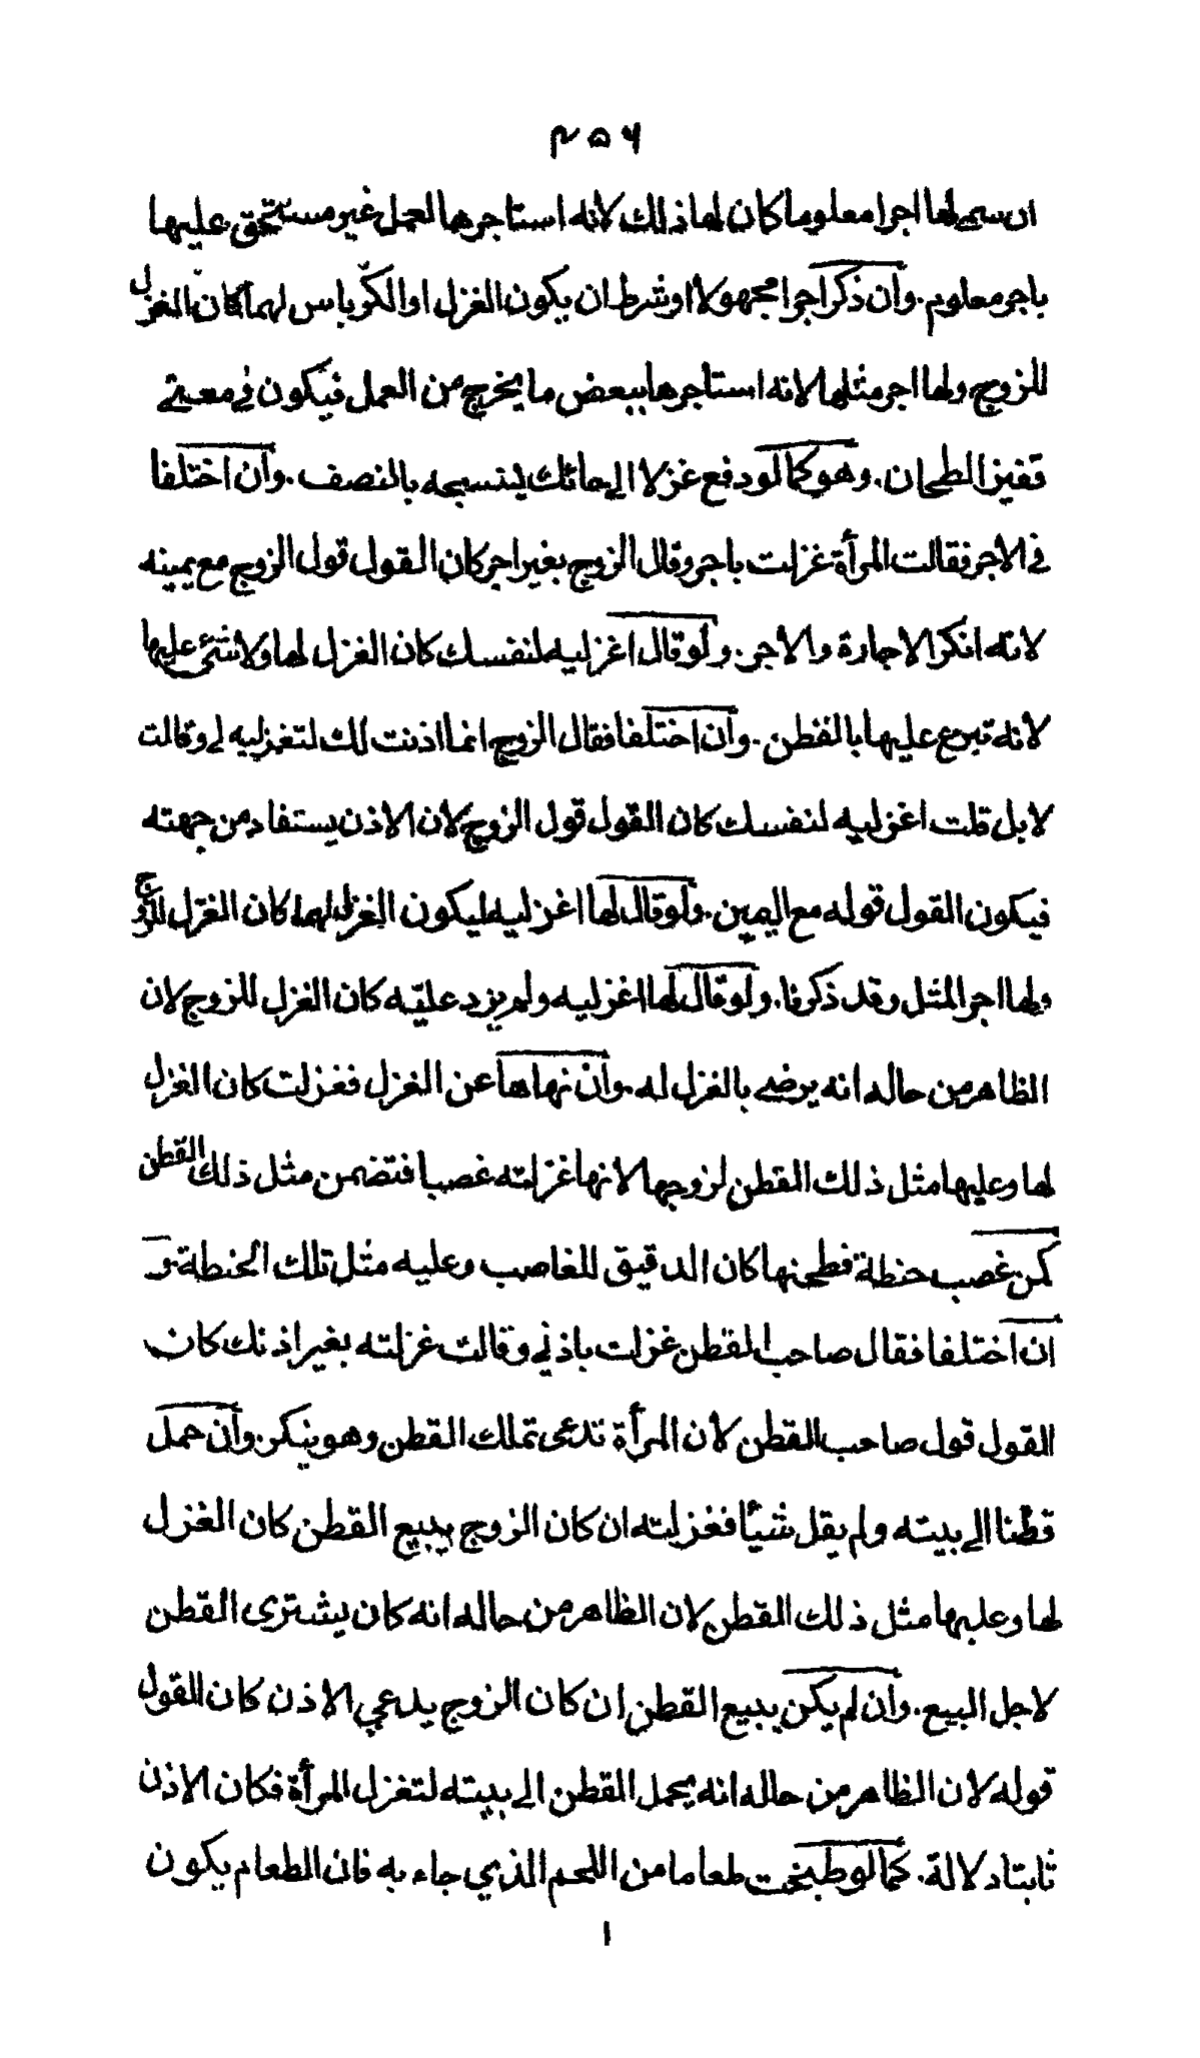 ٢٥٦
ان سمى لها اجرا معلوما كان لها ذلك لانه استاجرها لعمل غير مستحق عليها
باجر معلوم. وان ذكر اجرا مجهولا او شرط ان يكون الغزل او الكرباس لهما كان الغزل
للزوج ولها اجر مثلها لانه استاجرها ببعض ما يخرج من العمل فيكون في معنى
قفيز الطحان. وهو كما لو دفع غزلا الى حائك لينسجه بالنصف. وان اختلفا
في الاجر فقالت المرأة غزلت باجر وقال الزوج بغير اجر كان القول قول الزوج مع يمينه
لانه انكر الاجارة والاجر. ولو قال اغزليه لنفسك كان الغزل لها ولا شئ عليها
لانه تبرع عليها بالقطن. وان اختلفا فقال الزوج انما اذنت لك لتغزليه لي وقالت
لا بل قلت اغزليه لنفسك كان القول قول الزوج لان الاذن يستفاد من جهته
فيكون القول قوله مع اليمين. ولو قال لها اغزليه ليكون الغزل لهما كان الغزل للزوج
ولها اجر المثل وقد ذكرنا. ولو قال لها اغزليه ولم يزد عليه كان الغزل للزوج لان
الظاهر من حاله انه يرضى بالغزل له. وان نهاها عن الغزل فغزلت كان الغزل
لها وعليها مثل ذلك القطن لزوجها لانها غزلته غصبا فتضمن مثل ذلك القطن
كمن غصب حنطة فطحنها كان الدقيق للغاصب وعليه مثل تلك الحنطة. و
ان اختلفا فقال صاحب القطن غزلت باذني وقالت غزلته بغير اذنك كان
القول قول صاحب القطن لان المرأة تدعى تملك القطن وهو ينكر. وان حمل
قطنا الى بيته ولم يقل شيئا فغزلته ان كان الزوج يبيع القطن كان الغزل
لها وعليها مثل ذلك القطن لان الظاهر من حاله انه كان يشترى القطن
لاجل البيع. وان لم يكن يبيع القطن ان كان الزوج يدعي الاذن كان القول
قوله لان الظاهر من حاله انه يحمل القطن الى بيته لتغزل المرأة فكان الاذن
ثابتا دلالة. كما لو طبخت طعاما من اللحم الذي جاء به فان الطعام يكون
ا